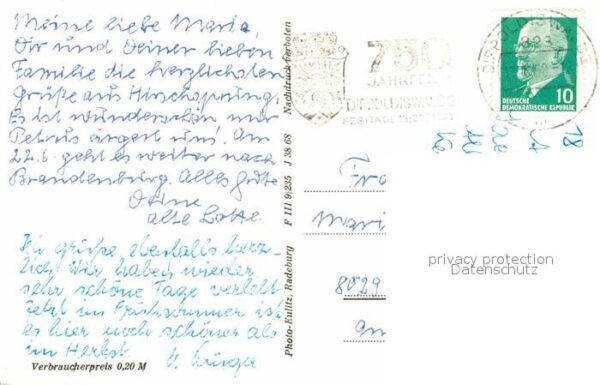 Meine liebe Maria,
Dir und Deiner lieben
Familie die herzlichsten
Grüße aus Hirschsprung.
Es ist wunderschön nur
Petrus ärgert uns! Am
22.6. geht es weiter nach
Brandenburg. Alles Gute
Deine
alte Lotte.
Ich grüße ebenfalls herz-
lich. Wir haben wieder
sehr schöne Tage verlebt
Jetzt im Frühsommer ist
es hier noch schöner als
im Herbst.
Verbraucherpreis 0,20 M
Photo-Eulitz, Radeburg F III 9|235 J 38 68 Nachdruck verboten
750
JAHRFEIER
DIPPOLDISWALDE
DIPPOLDISWALDE
DEUTSCHE
DEMOKRATISCHE REPUBLIK
10
18
Mari
8029
privacy protection
Datenschutz